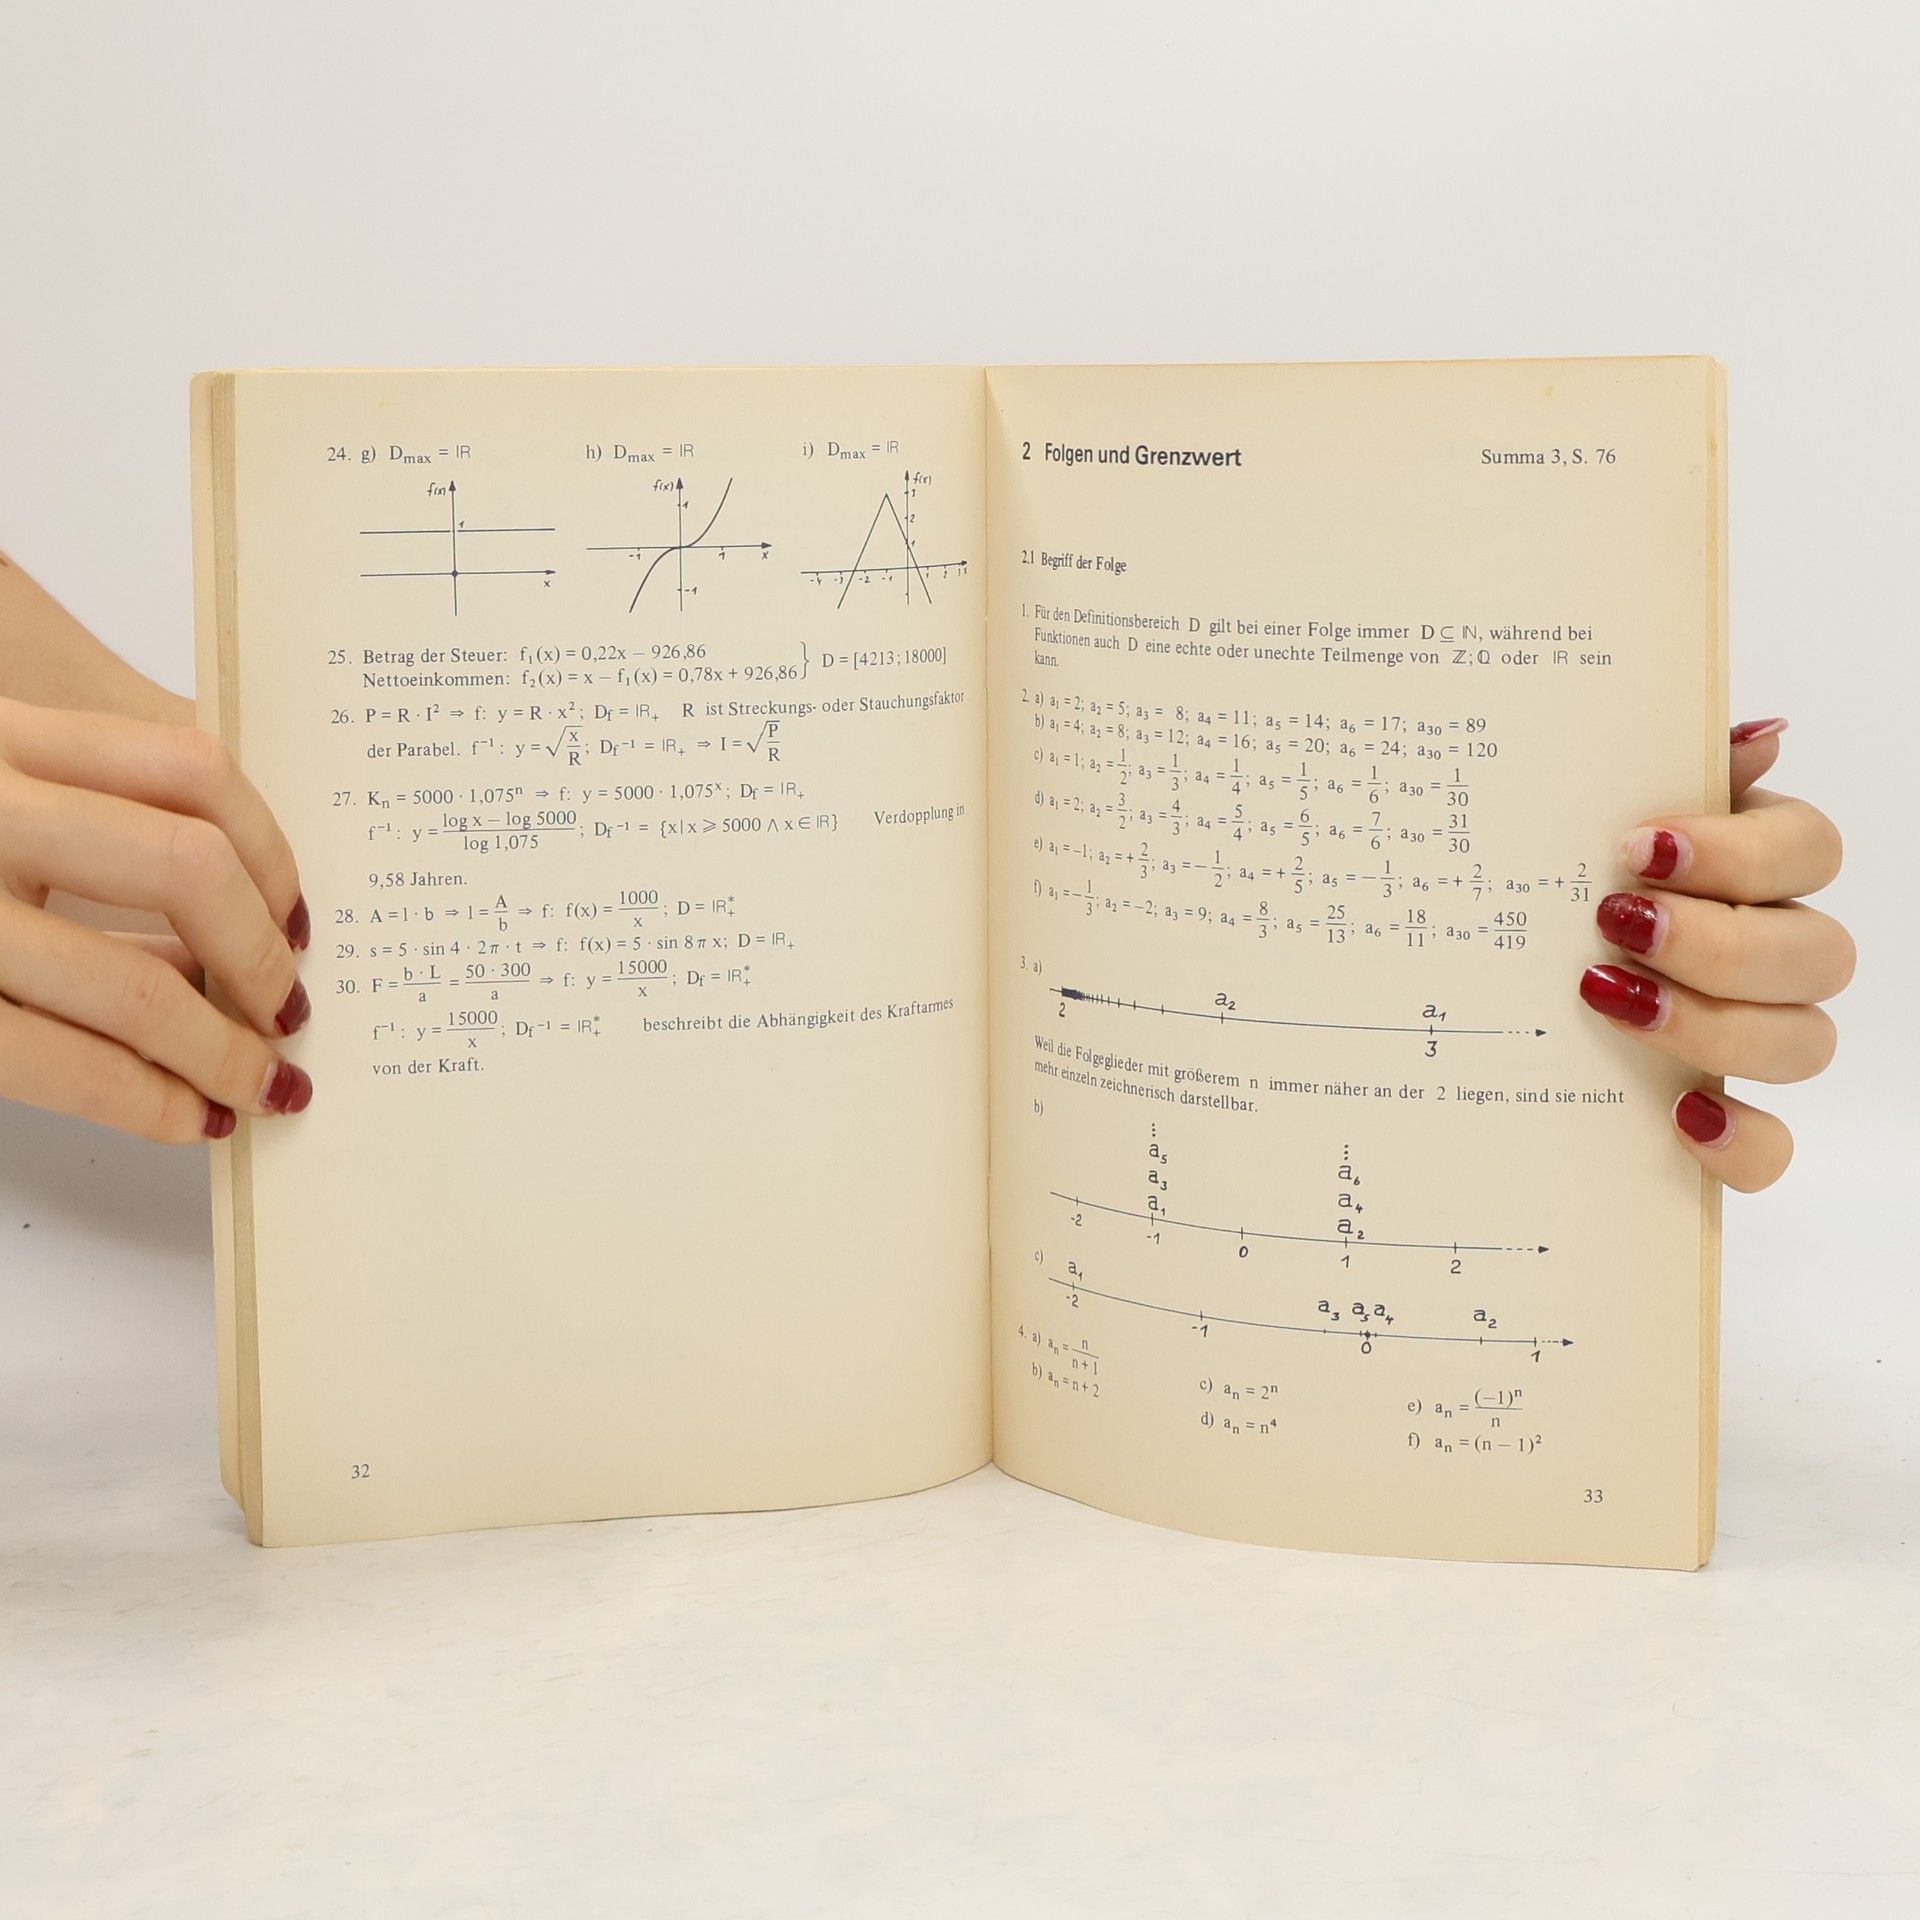 24. g) Dmax = ℝ h) Dmax = ℝ i) Dmax = ℝ
f(x) 1 x
f(x) 1 -1 1 x -1
f(x) 3 2 1 -4 -3 -2 -1 1 2 3 x
25. Betrag der Steuer: f₁(x) = 0,22x − 926,86
Nettoeinkommen: f₂(x) = x − f₁(x) = 0,78x + 926,86 } D = [4213; 18000]
26. P = R · I² ⇒ f: y = R · x²; Df = ℝ₊ R ist Streckungs- oder Stauchungsfaktor
der Parabel. f⁻¹: y = √(x/R); Df⁻¹ = ℝ₊ ⇒ I = √(P/R)
27. Kn = 5000 · 1,075ⁿ ⇒ f: y = 5000 · 1,075ˣ; Df = ℝ₊
f⁻¹: y = (log x − log 5000)/(log 1,075); Df⁻¹ = {x | x ⩾ 5000 ∧ x ∈ ℝ} Verdopplung in
9,58 Jahren.
28. A = l · b ⇒ l = A/b ⇒ f: f(x) = 1000/x; D = ℝ₊*
29. s = 5 · sin 4 · 2π · t ⇒ f: f(x) = 5 · sin 8π x; D = ℝ₊
30. F = (b · L)/a = (50 · 300)/a ⇒ f: y = 15000/x; Df = ℝ₊*
f⁻¹: y = 15000/x; Df⁻¹ = ℝ₊* beschreibt die Abhängigkeit des Kraftarmes
von der Kraft.
32
2 Folgen und Grenzwert Summa 3, S. 76
2.1 Begriff der Folge
1. Für den Definitionsbereich D gilt bei einer Folge immer D ⊆ ℕ, während bei
Funktionen auch D eine echte oder unechte Teilmenge von ℤ; ℚ oder ℝ sein
kann.
2. a) a₁ = 2; a₂ = 5; a₃ = 8; a₄ = 11; a₅ = 14; a₆ = 17; a₃₀ = 89
b) a₁ = 4; a₂ = 8; a₃ = 12; a₄ = 16; a₅ = 20; a₆ = 24; a₃₀ = 120
c) a₁ = 1; a₂ = 1/2; a₃ = 1/3; a₄ = 1/4; a₅ = 1/5; a₆ = 1/6; a₃₀ = 1/30
d) a₁ = 2; a₂ = 3/2; a₃ = 4/3; a₄ = 5/4; a₅ = 6/5; a₆ = 7/6; a₃₀ = 31/30
e) a₁ = −1; a₂ = + 2/3; a₃ = − 1/2; a₄ = + 2/5; a₅ = − 1/3; a₆ = + 2/7; a₃₀ = + 2/31
f) a₁ = − 1/3; a₂ = −2; a₃ = 9; a₄ = 8/3; a₅ = 25/13; a₆ = 18/11; a₃₀ = 450/419
3. a)
a₂ a₁
2 3
Weil die Folgeglieder mit größerem n immer näher an der 2 liegen, sind sie nicht
mehr einzeln zeichnerisch darstellbar.
b)
⋮ ⋮
a₅ a₆
a₃ a₄
a₁ a₂
-2 -1 0 1 2
c) a₁ a₃ a₅ a₄ a₂
-2 -1 0 1
4. a) an = n/(n + 1)
b) an = n + 2
c) an = 2ⁿ
d) an = n⁴
e) an = (−1)ⁿ/n
f) an = (n − 1)²
33